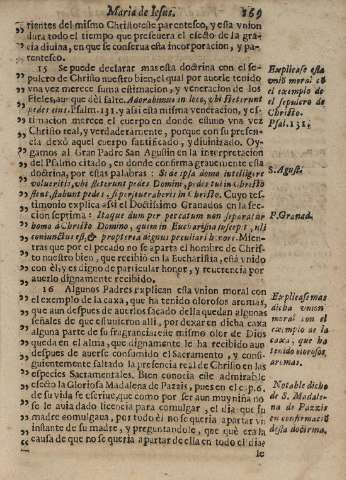 Maria de Iesus. 169
rientes del mismo Christo el parentesco, y esta vnion
dura todo el tiempo que preseuera el efecto de la gra
cia diuina, en que se conserua esta incorporacion, y pa-
rentesco.
15 Se puede declarar mas esta doctrina con el se-
pulcro de Christo nuestro bien, el qual por auerle tenido
vna vez merece suma estimacion, y veneracion de los
Fieles, que assi dize: Adorabimus in loco, vbi steterunt
pedes eius. Psalm. 131. y assi esta misma veneracion, y es-
timacion merece el cuerpo en donde estuuo vna vez
Christo real, y verdaderamente, porque con su presen-
cia dexò aquel cuerpo santificado, y diuinizado. Oy-
gamos al Gran Padre San Agustin en la interpretacion
del Psalmo citado, en donde confirma grauemente esta
doctrina, por estas palabras: Si de ipsa domo intelligere
volueritis, vbi steterunt pedes Domini, pedes tui in Christo
stent, stabunt pedes, si perseueraberis in Christo. Cuyo tes-
timonio explica assi el Doctissimo Granados en la sec-
cion septima: Itaque dum per peccatum non separatur
homo à Christo Domino, quem in Eucharistia suscepit, illi
coniunctus est, & propterea dignus peculiari honore. Mien-
tras que por el pecado no se aparta el hombre de Chris-
to nuestro bien, que recibiò en la Eucharistia, està vnido
con èl, y es digno de particular honor, y reuerencia por
auerlo dignamente recibido.
16 Algunos Padres explican esta vnion moral con
el exemplo de la caxa, que ha tenido olorosos aromas,
que aun despues de auerlos sacado della quedan algunas
señales de que estuuieron allì, por dexar en dicha caxa
alguna parte de su fragrancia: esse mismo olor de Dios
queda en el alma, que dignamente le ha recibido aun
despues de auerse consumido el Sacramento, y consi-
guientemente faltado la presencia real de Christo en las
especies Sacramentales. Bien conocia este admirable
efecto la Gloriosa Madalena de Pazzis, pues en el c. p. 6.
de su vida se escriue, que como por ser aun muy niña no
se le auia dado licencia para comulgar, el dia que su
madre comulgaua, por todo èl no se queria apartar vn
instante de su madre, y preguntandole, que què era la
causa de que no se queria apartar de ella en todo el dia
le
Explicase esta
vnion moral cõ
el exemplo de
el sepulcro de
Christo.
Psal. 131.
S. Agust.
P. Granad.
Explicase mas
dicha vnion
moral con el
exemplo de la
caxa, que ha
tenido olorosos
aromas.
Notable dicho
de S. Madale-
na de Pazzis
en confirmació
desta doctrina.